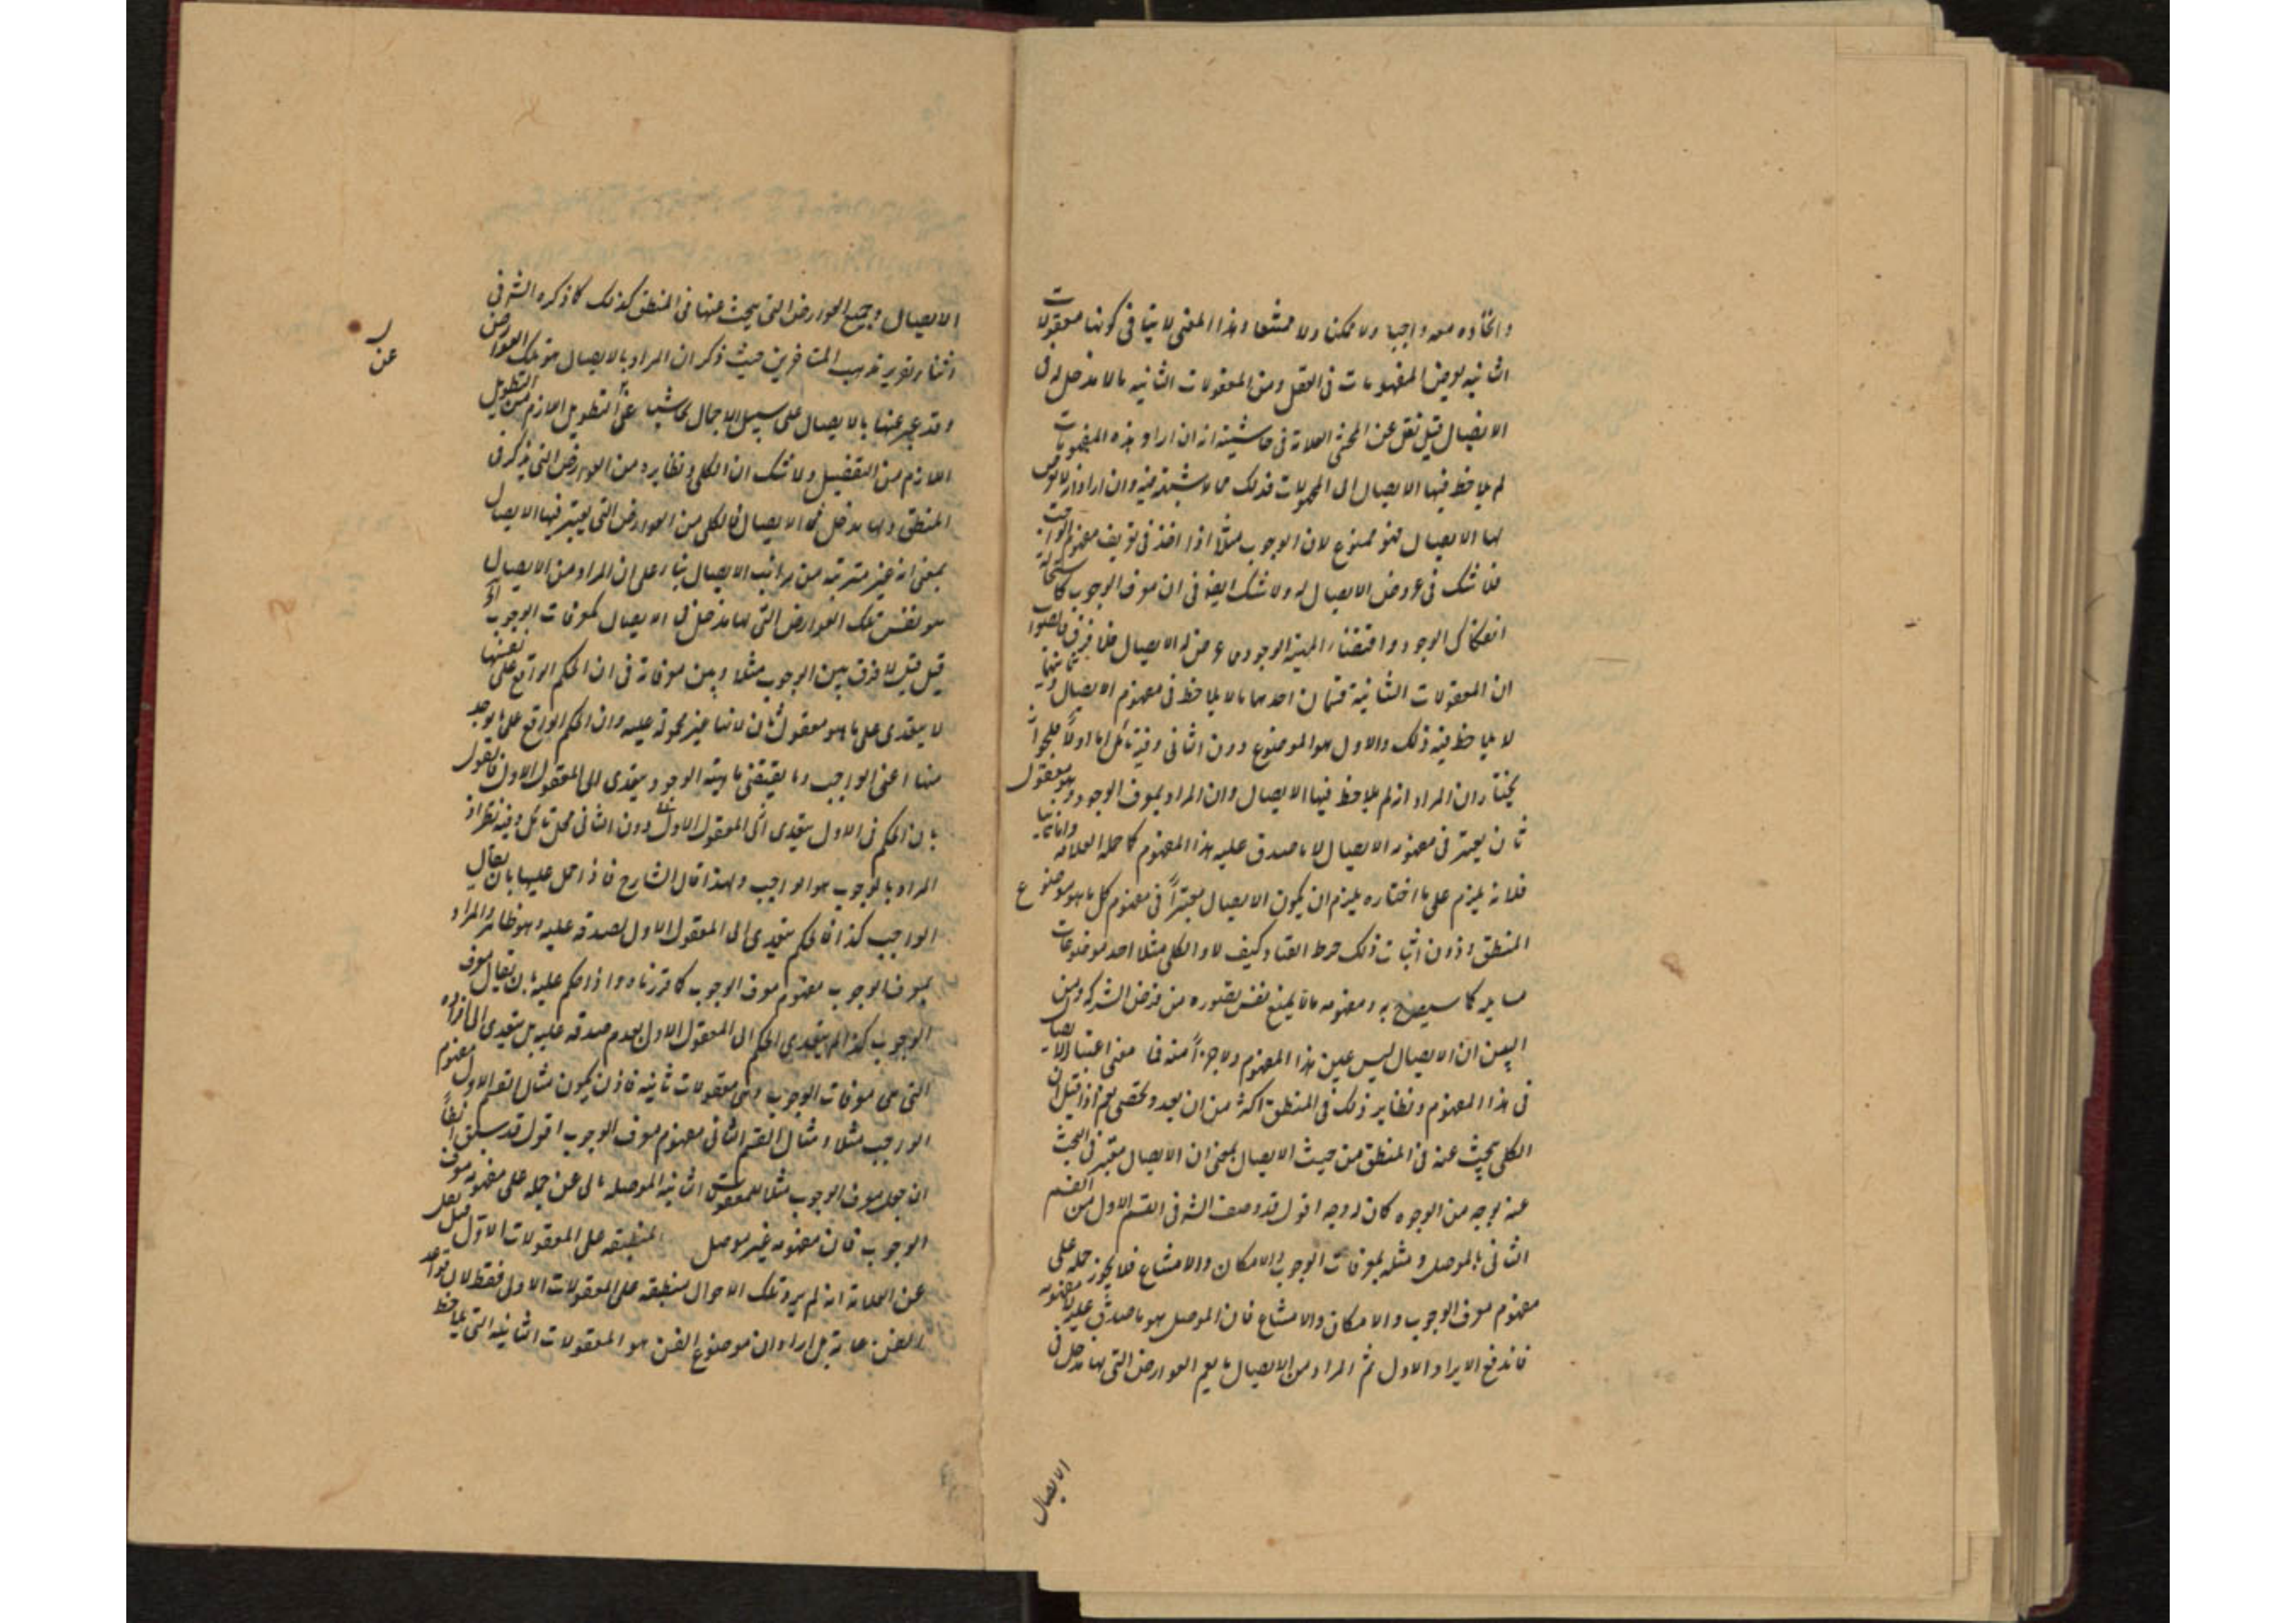 واتحاده معه واجبا ولا ممكنا ولا ممتنعا وهذا المعنى لا ينافى كونها معقولات
الثانيه يعرض المفهومات فى العقل ومن المعقولات الثانيه مالا مدخل له فى
الايصال قيل نقل عن المحشى العلامة فى حاشيته انه ان اراد بهذه المفهومات
لم يلاحظ فيها الايصال الى المجهولات فذلك مما لا شبهة فيه وان اراد انه لا يعرض
لها الايصال فهو ممنوع لان الوجوب مثلاً اذا اخذ فى تعريف مفهوم الواجب
فلا شك فى عروض الايصال له ولا شك ايضا فى ان معرف الوجوب كاستحالة
انفكاك الوجود واقتضاء المهية الوجود مما عرض له الايصال فلا فرق فالصواب
ان المعقولات الثانية قسمان احدهما ما لا يلاحظ فى مفهوم الايصال وثانيهما
لا يلاحظ فيه ذلك والاول هو الموضوع دون الثانى وفيه تأمل اما اولاً فلجواز ان
يختار ان المراد انه لم يلاحظ فيها الايصال وان المراد بمعرف الوجود وهو معقول
ثان يعتبر فى مفهومه الايصال لا ما صدق عليه هذا المفهوم كما حمله العلامه واما ثانيا
فلانه يلزم على ما اختاره يلزم ان يكون الايصال معتبراً فى مفهوم كل ما هو موضوع
المنطق ودون اثبات ذلك خرط القتاد كيف لا والكلى مثلا احد موضوعات
مسايله كما سيصرح به ومفهومه مالا يمنع نفس تصوره من فرض الشركه ومن
البين ان الايصال ليس عين هذا المفهوم ولا جزأً منه فما معنى اعتبار الايصال
فى هذا المفهوم ونظاير ذلك فى المنطق اكثر من ان يعد ويحصى نعم اذا قيل ان
الكلى يبحث عنه فى المنطق من حيث الايصال بمعنى ان الايصال معتبر فى البحث
عنه بوجه من الوجوه كان له وجه اقول قد وصف الشه فى القسم الاول من القسم
الثانى بالموصل ومثله بمعرفات الوجوب والامكان والامتناع فلا يجوز حمله على
مفهوم معرف الوجوب والامكان والامتناع فان الموصل هو ما صدق عليه لا مفهومه
فاندفع الايراد الاول ثم المراد من الايصال ما يعم العوارض التى لها مدخل فى
الايصال
الايصال وجميع العوارض التى يبحث عنها فى المنطق كذلك كما ذكره الشه فى
اثناء تقرير مذهب المتاخرين حيث ذكر ان المراد بالايصال هو تلك العوارض
وقد عبر عنها بالايصال على سبيل الاجمال تحاشيا عن التطويل اللازم من التطويل
عن
اللازم من التفصيل ولا شك ان الكلى ونظايره من العوارض التى يذكر فى
المنطق ولها مدخل فى الايصال فالكلى من العوارض التى يعتبر فيها الايصال
بمعنى انه غير مرتبة من مراتب الايصال بناء على ان المراد من الايصال
هو نفس تلك العوارض التى لها مدخل فى الايصال كمعرفات الوجوب
قيل عليه لا فرق بين الوجوب مثلا وبين معرفاته فى ان الحكم الواقع على نفسها
لا يتعدى على ما هو معقول ثان لانها غير محموله عليه وان الحكم الواقع على ما يوجد
منها اعنى الواجب وما يقتضى ماهيته الوجود يتعدى الى المعقول الاول فالقول
بان الحكم فى الاول يتعدى الى المعقول الاول دون الثانى محل تامل وفيه نظر اذ
المراد بالوجوب هو الواجب ولهذا قال الشارح فاذا حمل عليها بان يقال
الواجب كذا فالحكم يتعدى الى المعقول الاول لصدقه عليه وهو ظاهر والمراد
بمعرف الوجوب مفهوم معرف الوجوب كما قررناه واذا حكم عليه بان يقال معرف
الوجوب كذا لم يتعدى الحكم الى المعقول الاول لعدم صدقه عليه بل يتعدى الى افراده
التى هى معرفات الوجوب وهى معقولات ثانيه فاذن يكون مثال القسم الاول مفهوم
الواجب مثلا ومثال القسم الثانى مفهوم معرف الوجوب اقول قد سبق انفاً
ان جعل معرف الوجوب مثلا للمعقولات الثانيه الموصله مالى عن حمله على مفهوم معرف
الوجوب فان مفهومه غير موصل المنطبقه على المعقولات الاول قيل نقل
عن العلامة انه لم يرو تلك الاحوال منطبقه على المعقولات الاولى فقط لان قواعد
الفن عامة بل اراد ان موضوع الفن هو المعقولات الثانيه التى يلاحظ